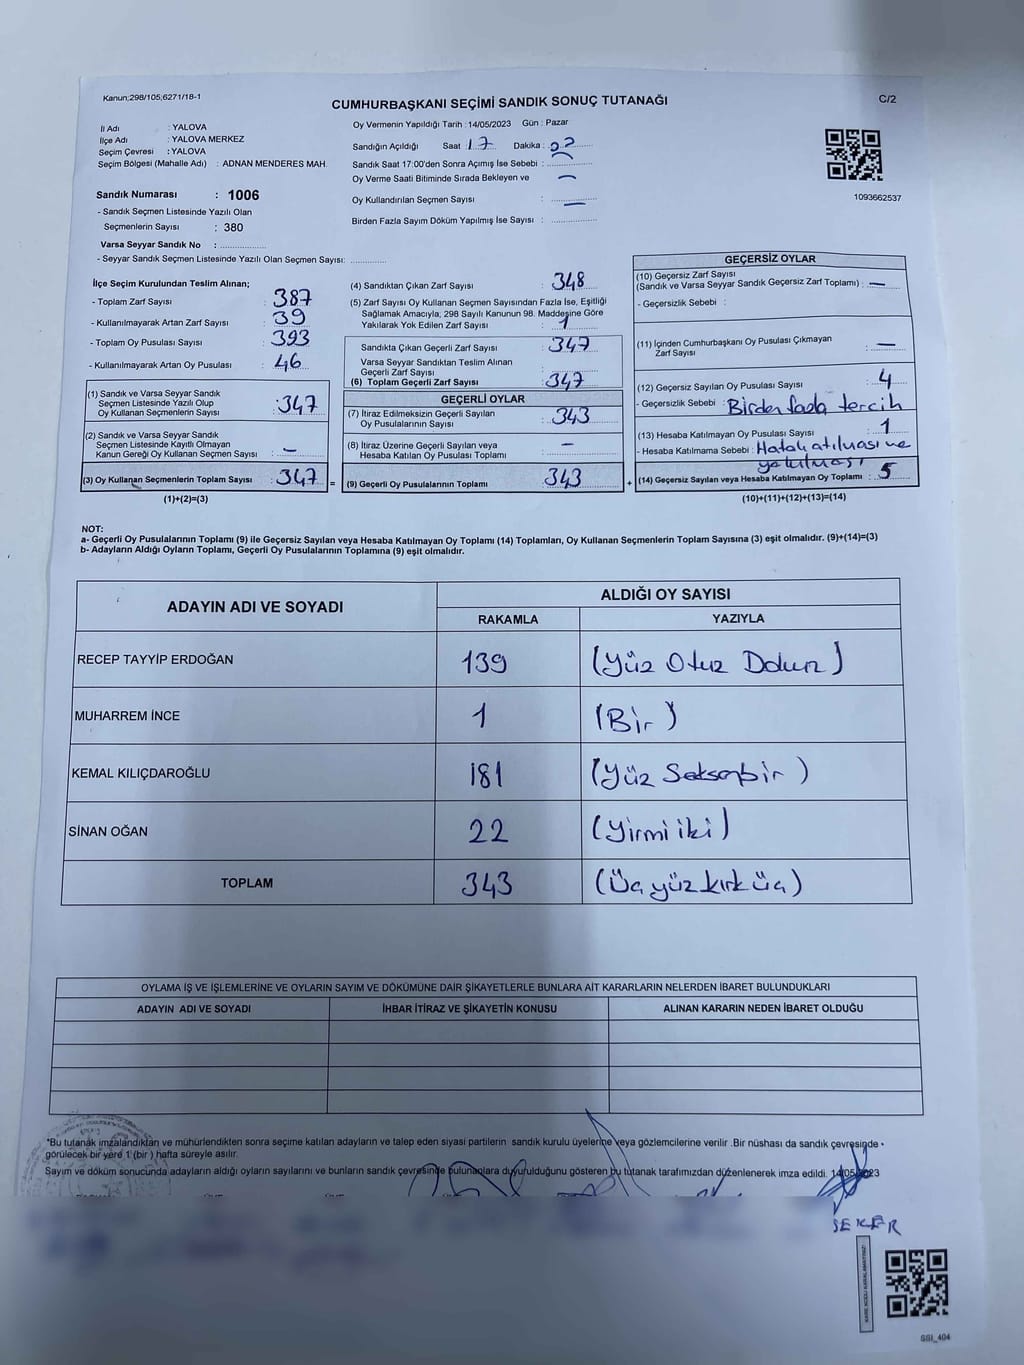 Kanun;298/105;6271/18-1
CUMHURBAŞKANI SEÇİMİ SANDIK SONUÇ TUTANAĞI
C/2
İl Adı : YALOVA
İlçe Adı : YALOVA MERKEZ
Seçim Çevresi : YALOVA
Seçim Bölgesi (Mahalle Adı) : ADNAN MENDERES MAH.
Oy Vermenin Yapıldığı Tarih : 14/05/2023 Gün : Pazar
Sandığın Açıldığı Saat 17 Dakika : 02
Sandık Saat 17:00'den Sonra Açımış İse Sebebi :
Oy Verme Saati Bitiminde Sırada Bekleyen ve —
Oy Kullandırılan Seçmen Sayısı : —
Birden Fazla Sayım Döküm Yapılmış İse Sayısı :
1093662537
Sandık Numarası : 1006
- Sandık Seçmen Listesinde Yazılı Olan
Seçmenlerin Sayısı : 380
Varsa Seyyar Sandık No :
- Seyyar Sandık Seçmen Listesinde Yazılı Olan Seçmen Sayısı:
İlçe Seçim Kurulundan Teslim Alınan;
- Toplam Zarf Sayısı : 387
- Kullanılmayarak Artan Zarf Sayısı : 39
- Toplam Oy Pusulası Sayısı : 393
- Kullanılmayarak Artan Oy Pusulası : 46
(1) Sandık ve Varsa Seyyar Sandık
Seçmen Listesinde Yazılı Olup
Oy Kullanan Seçmenlerin Sayısı : 347
(2) Sandık ve Varsa Seyyar Sandık
Seçmen Listesinde Kayıtlı Olmayan
Kanun Gereği Oy Kullanan Seçmen Sayısı : —
(3) Oy Kullanan Seçmenlerin Toplam Sayısı : 347 =
(1)+(2)=(3)
(4) Sandıktan Çıkan Zarf Sayısı : 348
(5) Zarf Sayısı Oy Kullanan Seçmen Sayısından Fazla İse, Eşitliği
Sağlamak Amacıyla, 298 Sayılı Kanunun 98. Maddesine Göre
Yakılarak Yok Edilen Zarf Sayısı : 1
Sandıkta Çıkan Geçerli Zarf Sayısı : 347
Varsa Seyyar Sandıktan Teslim Alınan
Geçerli Zarf Sayısı :
(6) Toplam Geçerli Zarf Sayısı : 347
GEÇERLİ OYLAR
(7) İtiraz Edilmeksizin Geçerli Sayılan
Oy Pusulalarının Sayısı : 343
(8) İtiraz Üzerine Geçerli Sayılan veya
Hesaba Katılan Oy Pusulası Toplamı : —
(9) Geçerli Oy Pusulalarının Toplamı : 343 +
GEÇERSİZ OYLAR
(10) Geçersiz Zarf Sayısı
(Sandık ve Varsa Seyyar Sandık Geçersiz Zarf Toplamı) : —
- Geçersizlik Sebebi :
(11) İçinden Cumhurbaşkanı Oy Pusulası Çıkmayan
Zarf Sayısı : —
(12) Geçersiz Sayılan Oy Pusulası Sayısı : 4
- Geçersizlik Sebebi : Birden fazla tercih
(13) Hesaba Katılmayan Oy Pusulası Sayısı : 1
- Hesaba Katılmama Sebebi : Hatalı atılması ve
yakılması
(14) Geçersiz Sayılan veya Hesaba Katılmayan Oy Toplamı : 5
(10)+(11)+(12)+(13)=(14)
NOT:
a- Geçerli Oy Pusulalarının Toplamı (9) ile Geçersiz Sayılan veya Hesaba Katılmayan Oy Toplamı (14) Toplamları, Oy Kullanan Seçmenlerin Toplam Sayısına (3) eşit olmalıdır. (9)+(14)=(3)
b- Adayların Aldığı Oyların Toplamı, Geçerli Oy Pusulalarının Toplamına (9) eşit olmalıdır.
ADAYIN ADI VE SOYADI
ALDIĞI OY SAYISI
RAKAMLA YAZIYLA
RECEP TAYYİP ERDOĞAN 139 (Yüz Otuz Dokuz)
MUHARREM İNCE 1 (Bir)
KEMAL KILIÇDAROĞLU 181 (Yüz Seksenbir)
SİNAN OĞAN 22 (Yirmi iki)
TOPLAM 343 (Üç yüz kırk üç)
OYLAMA İŞ VE İŞLEMLERİNE VE OYLARIN SAYIM VE DÖKÜMÜNE DAİR ŞİKAYETLERLE BUNLARA AİT KARARLARIN NELERDEN İBARET BULUNDUKLARI
ADAYIN ADI VE SOYADI İHBAR İTİRAZ VE ŞİKAYETİN KONUSU ALINAN KARARIN NEDEN İBARET OLDUĞU
"Bu tutanak imzalandıktan ve mühürlendikten sonra seçime katılan adayların ve talep eden siyasi partilerin sandık kurulu üyelerine veya gözlemcilerine verilir .Bir nüshası da sandık çevresinde
görülecek bir yere 1 (bir ) hafta süreyle asılır.
Sayım ve döküm sonucunda adayların aldığı oyların sayılarını ve bunların sandık çevresinde bulunanlara duyurulduğunu gösteren bu tutanak tarafımızdan düzenlenerek imza edildi. 14/05/2023
ŞEKER
SSI_404